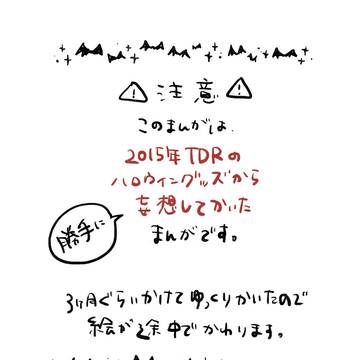 注意
このまんがは、
2015年TDRの
ハロウィングッズから
妄想してかいた
勝手に
まんがです。
3ヶ月ぐらいかけてゆっくりかいたので
絵が途中でかわります。